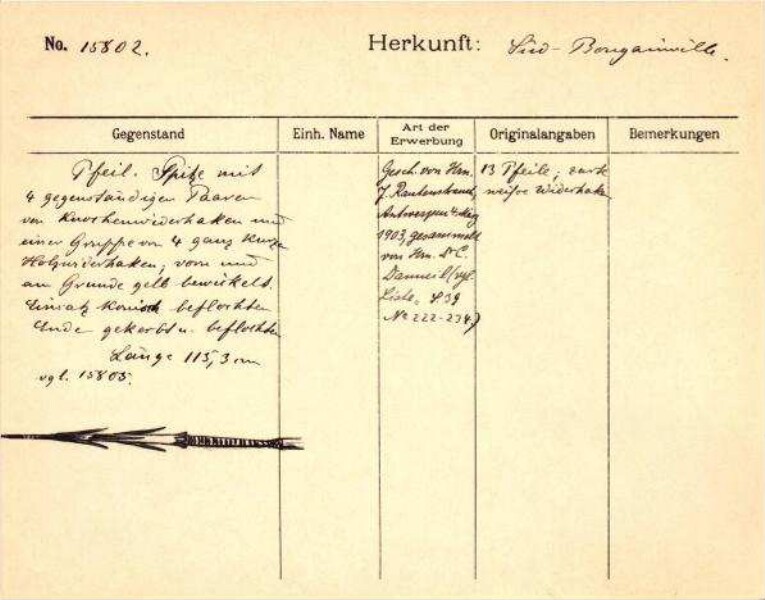 No. 15802. Herkunft: Süd-Bougainville.
Gegenstand Einh. Name Art der Erwerbung Originalangaben Bemerkungen
Pfeil. Spitze mit
4 gegenständigen Paaren
von Knochenwiderhaken und
einer Gruppe von 4 ganz kurzen
Holzwiderhaken; vorn und
am Grunde gelb bewickelt.
Einsatz konisch beflochten
Ende gekerbt u. beflochten
Länge 115,3 cm
vgl. 15805.
Gesch. von Hrn.
J. Rautenstrauch,
Antwerpen
1903, gesammelt
von Hrn. Dr C.
Danneil (vgl.
Liste, S. 39
No 222-234.)
13 Pfeile;
Widerhaken